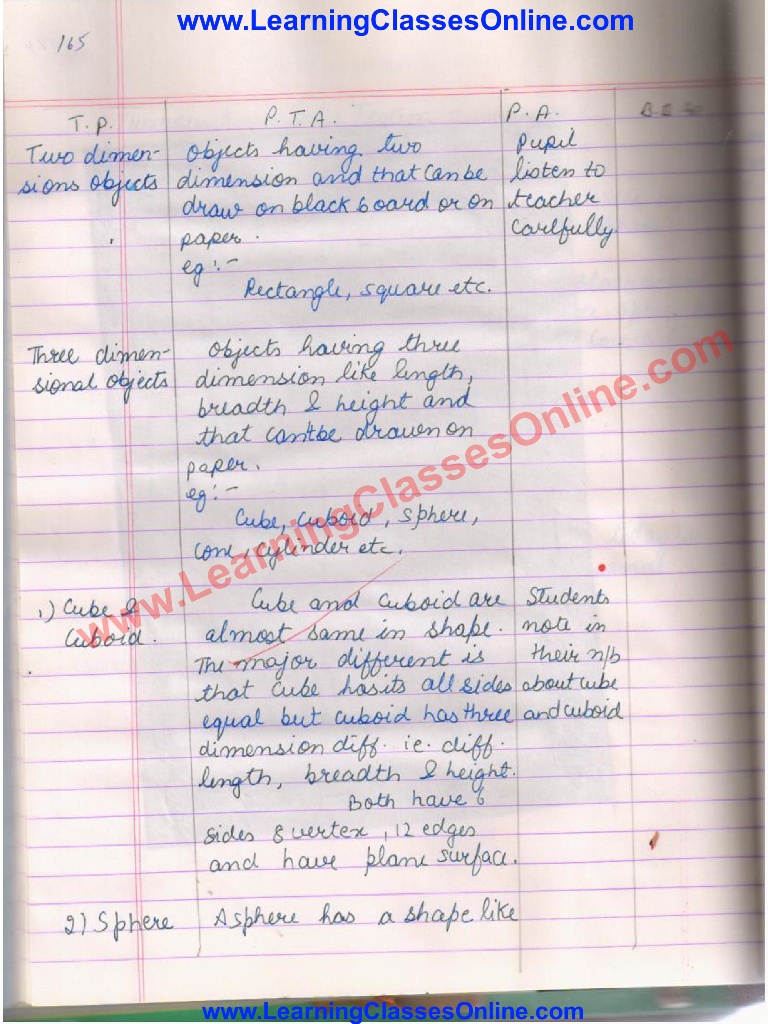 www.LearningClassesOnline.com
165
T.P. P.T.A. P.A.
Two dimen- objects having two Pupil
sions objects dimension and that can be listen to
draw on black board or on teacher
paper. carlfully
eg :-
Rectangle, square etc.
Three dimen- objects having three
sional objects dimension like length,
breadth & height and
that can't be drawen on
paper.
eg :-
Cube, cuboid, sphere,
cone, cylinder etc.
www.LearningClassesOnline.com
1) Cube & Cube and cuboid are Students
Cuboid. almost same in shape. note in
The major different is their n/b
that cube has its all sides about cube
equal but cuboid has three and cuboid
dimension diff. ie. diff.
length, breadth & height.
Both have 6
sides 8 vertex, 12 edges
and have plane surface.
2) Sphere A sphere has a shape like
www.LearningClassesOnline.com